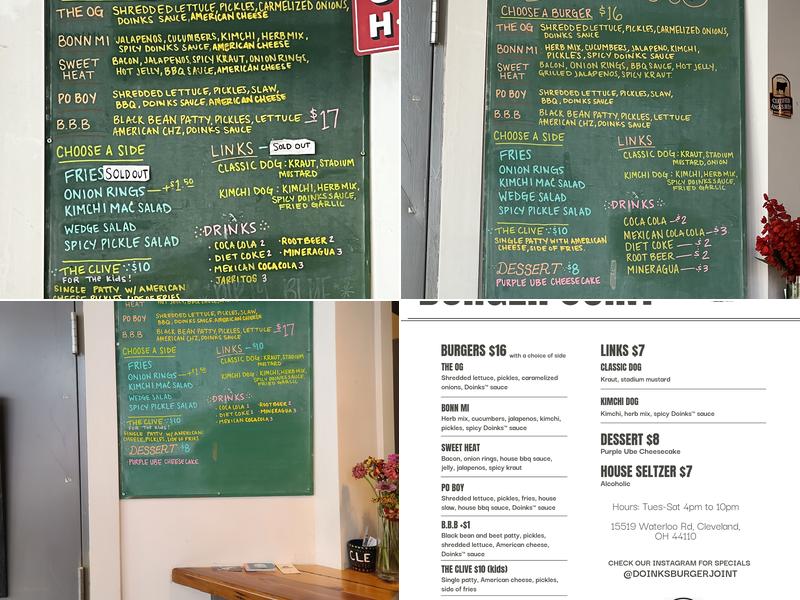 THE OG SHREDDED LETTUCE, PICKLES, CARMELIZED ONIONS,
DOINKS SAUCE, AMERICAN CHEESE
BONN MI JALAPENOS, CUCUMBERS, KIMCHI, HERB MIX,
SPICY DOINKS SAUCE, AMERICAN CHEESE
SWEET HEAT BACON, JALAPENOS, SPICY KRAUT, ONION RINGS,
HOT JELLY, BBQ SAUCE, AMERICAN CHEESE
PO BOY SHREDDED LETTUCE, PICKLES, SLAW,
BBQ, DOINKS SAUCE, AMERICAN CHEESE
B.B.B BLACK BEAN PATTY, PICKLES, LETTUCE $17
AMERICAN CHZ, DOINKS SAUCE
CHOOSE A SIDE
FRIES SOLD OUT
ONION RINGS — +$1.50
KIMCHI MAC SALAD
WEDGE SALAD
SPICY PICKLE SALAD
THE CLIVE $10
FOR THE KIDS!
SINGLE PATTY W/ AMERICAN
CHEESE, PICKLES, SIDE OF FRIES
LINKS — SOLD OUT
CLASSIC DOG: KRAUT, STADIUM
MUSTARD
KIMCHI DOG: KIMCHI, HERB MIX,
SPICY DOINKS SAUCE,
FRIED GARLIC
DRINKS
• COCA COLA 2 • ROOT BEER 2
• DIET COKE 2 • MINERAGUA 3
• MEXICAN COCACOLA 3
• JARRITOS 3
CHOOSE A BURGER $16
THE OG SHREDDED LETTUCE, PICKLES, CARMELIZED ONIONS,
DOINKS SAUCE
BONN MI HERB MIX, CUCUMBERS, JALAPENO, KIMCHI,
PICKLES, SPICY DOINKS SAUCE
SWEET HEAT BACON, ONION RINGS, BBQ SAUCE, HOT JELLY,
GRILLED JALAPENOS, SPICY KRAUT.
PO BOY SHREDDED LETTUCE, PICKLES, SLAW,
BBQ, DOINKS SAUCE
B.B.B BLACK BEAN PATTY, PICKLES, LETTUCE
AMERICAN CHZ, DOINKS SAUCE
CHOOSE A SIDE
FRIES
ONION RINGS
KIMCHI MAC SALAD
WEDGE SALAD
SPICY PICKLE SALAD
THE CLIVE $10
SINGLE PATTY WITH AMERICAN
CHEESE, SIDE OF FRIES.
DESSERT $8
PURPLE UBE CHEESECAKE
LINKS
CLASSIC DOG: KRAUT, STADIUM
MUSTARD, ONION
KIMCHI DOG: KIMCHI, HERB MIX,
SPICY DOINKS SAUCE,
FRIED GARLIC
DRINKS
COCA COLA — $2
MEXICAN COCA COLA — $3
DIET COKE — $2
ROOT BEER — $2
MINERAGUA — $3
PO BOY SHREDDED LETTUCE, PICKLES, SLAW,
BBQ, DOINKS SAUCE, AMERICAN CHEESE
B.B.B BLACK BEAN PATTY, PICKLES, LETTUCE $17
AMERICAN CHZ, DOINKS SAUCE
CHOOSE A SIDE
FRIES
ONION RINGS — +$1.50
KIMCHI MAC SALAD
WEDGE SALAD
SPICY PICKLE SALAD
THE CLIVE $10
FOR THE KIDS!
SINGLE PATTY W/ AMERICAN
CHEESE, PICKLES, SIDE OF FRIES
DESSERT $8
PURPLE UBE CHEESECAKE
LINKS — $10
CLASSIC DOG: KRAUT, STADIUM
MUSTARD
KIMCHI DOG: KIMCHI, HERB MIX,
SPICY DOINKS SAUCE,
FRIED GARLIC
DRINKS
• COCA COLA 2 • ROOT BEER 2
• DIET COKE 2 • MINERAGUA 3
• MEXICAN COCACOLA 3
CLE
BURGER JOINT
BURGERS $16 with a choice of side
THE OG
Shredded lettuce, pickles, caramelized
onions, Doinks™ sauce
BONN MI
Herb mix, cucumbers, jalapenos, kimchi,
pickles, spicy Doinks™ sauce
SWEET HEAT
Bacon, onion rings, house bbq sauce,
jelly, jalapenos, spicy kraut
PO BOY
Shredded lettuce, pickles, fries, house
slaw, house bbq sauce, Doinks™ sauce
B.B.B +$1
Black bean and beet patty, pickles,
shredded lettuce, American cheese,
Doinks™ sauce
THE CLIVE $10 (kids)
Single patty, American cheese, pickles,
side of fries
LINKS $7
CLASSIC DOG
Kraut, stadium mustard
KIMCHI DOG
Kimchi, herb mix, spicy Doinks™ sauce
DESSERT $8
Purple Ube Cheesecake
HOUSE SELTZER $7
Alcoholic
Hours: Tues-Sat 4pm to 10pm
15519 Waterloo Rd, Cleveland,
OH 44110
CHECK OUR INSTAGRAM FOR SPECIALS
@DOINKSBURGERJOINT